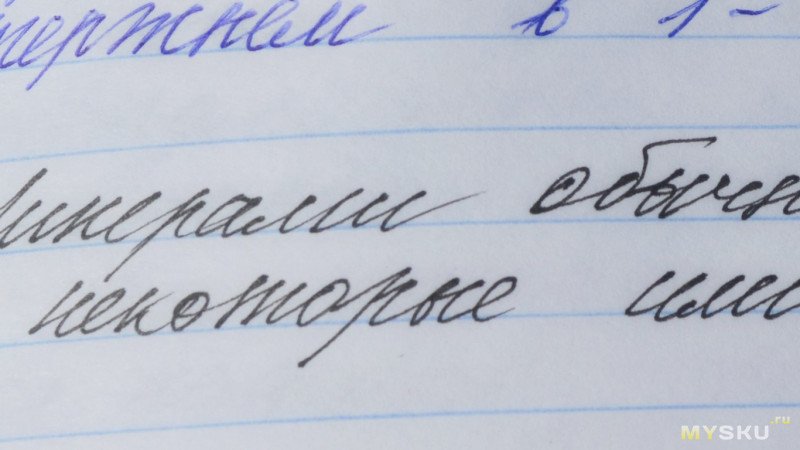 тержнем в 1-
Линерами обычн
некоторые или
MYSKU.ru